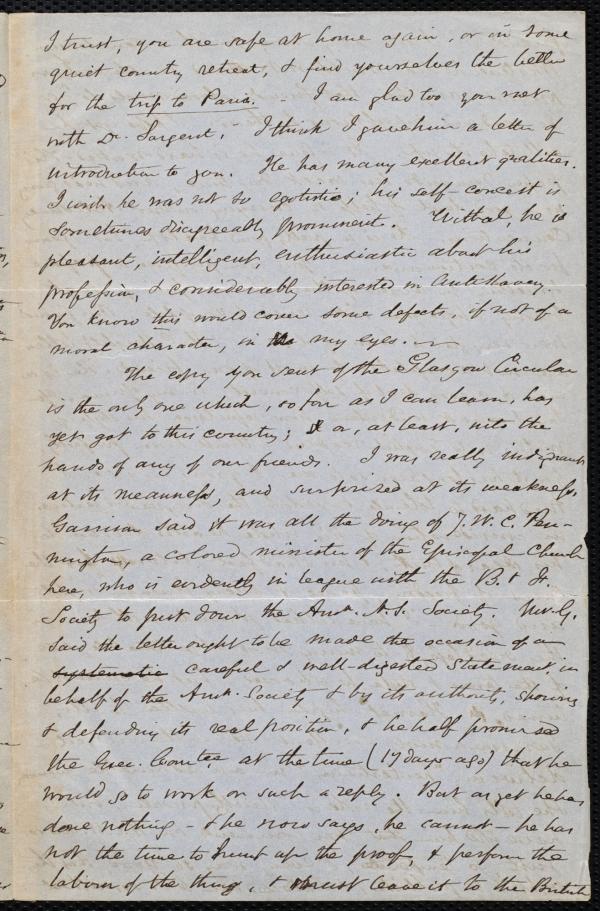 I trust, you are safe at home again, or in some
quiet country retreat, & find yourselves the better
for the trip to Paris. - I am glad too you met
with Dr. Sargent. I think I gave him a letter of
introduction to you. He has many excellent qualities.
I wish he was not so egotistic; his self conceit is
sometimes disagreeably prominent. Withal, he is
pleasant, intelligent, enthusiastic about his
profession, & considerably interested in Antislavery.
You know this would cover some defects, if not of a
moral character, in my eyes.
The copy you sent of the Glasgow Circular
is the only one which, so far as I can learn, has
yet got to this country; or, at least, into the
hands of any of our friends. I was really indignant
at its meanness, and surprized at its weakness.
Garrison said it was all the doing of J. W. C. Pen-
nington, a colored minister of the Episcopal Church
here, who is evidently in league with the B. & F.
Society to put down the Amn. A. S. Society. Mr. G.
said the letter ought to be made the occasion of a
systematic careful & well-digested Statement, in
behalf of the Amn. Society & by its authority, showing
& defending its real position, & he half promised
the Exec. Comtee at the time (17 days ago) that he
would go to work on such a reply. But as yet he has
done nothing - & he now says, he cannot - he has
not the time to hunt up the proofs, & perform the
labour of the thing, & must leave it to the British